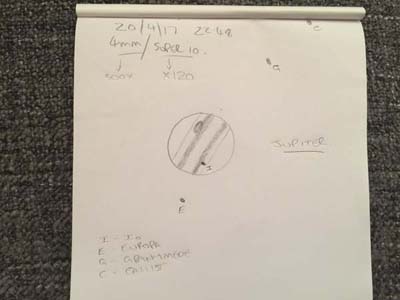 20/4/17 2248
C
4mm/SUPER 10.
G
300x x120
JUPITER
I
E
I - Io
E - EUROPA
G - GANYMEDE
C - CALLISTO